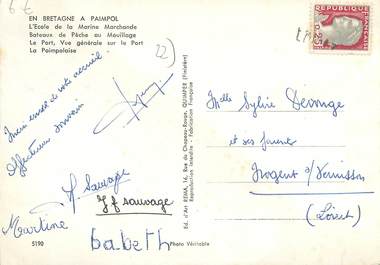 6 €
EN BRETAGNE A PAIMPOL
L'Ecole de la Marine Marchande
Bateaux de Pêche au Mouillage
Le Port, Vue générale sur le Port
La Paimpolaise
22)
REPUBLIQUE
FRANÇAISE
0,25
Merci à votre accueil
Affectueux souvenir
M. Sauvage
J f sauvage
Martine
babeth
5190
Photo Véritable
Ed. d'Art REMA, 16, Rue du Chapeau-Rouge, QUIMPER (Finistère)
Reproduction Interdite - Fabrication Française
Melle Sylvie
et ses parents
Nogent s/ Vernisson
(Loiret)